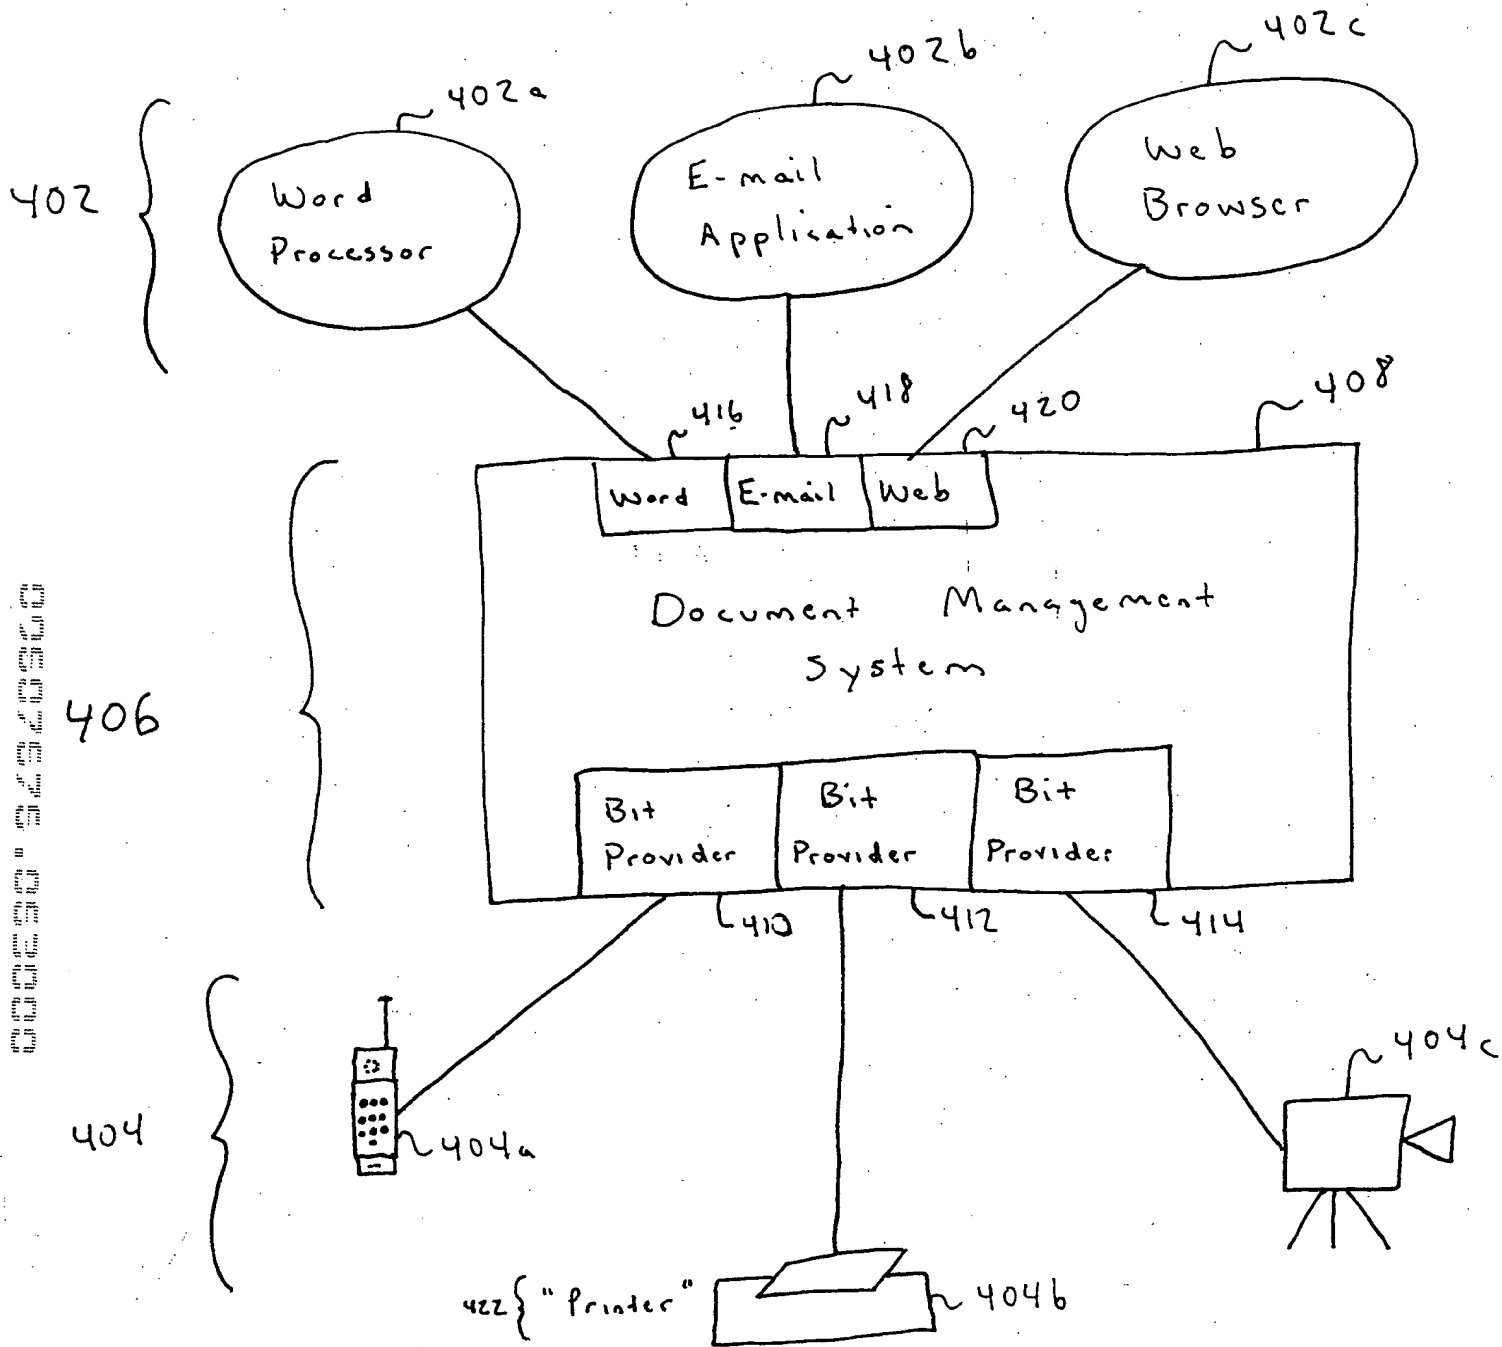 402a
402b
402c
402
Word
Processor
E-mail
Application
Web
Browser
416
418
420
408
Word
E-mail
Web
Document Management
System
406
Bit
Provider
Bit
Provider
Bit
Provider
410
412
414
404
404a
404c
422 { "Printer"
404b